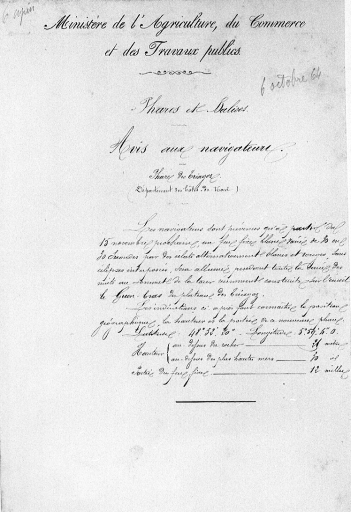 Ministère de l'Agriculture, du Commerce
et des Travaux publics.
6 octobre 64
Phares et Balises.
Avis aux navigateurs.
Phare de Triagoz
(Département des Côtes du Nord)
Les navigateurs sont prévenus qu'à partir du
15 novembre prochain un feu fixe blanc varié de 30 en
30 secondes par des éclats alternativement blancs et rouges sans
éclipses sera allumé pendant toute la durée des
nuits au sommet de la tour construite sur
le Guen-bras du plateau de Triagoz.
Les indications ci après font connaître la position
géographique, la hauteur et la portée de ce nouveau phare.
Latitude 48° 52' Longitude 5°
Hauteur au dessus du rocher mètres
au dessus des plus hautes mers 30 id
Portée du feu fixe 12 milles